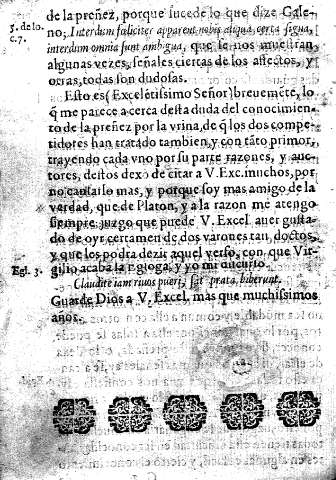 de la preñez, porque sucede lo que dize Gale-
5. de lo.
c. 7.
no; Interdum fœliciter apparent nobis aliqua certa signa,
interdum omnia sunt ambigua, que se nos muestran
algunas vezes, señales ciertas de los affectos, y
otras, todas son dudosas.
Esto es (Excelẽtissimo Señor) breuemẽte, lo
q̃ me parece acerca desta duda del conocimien-
to de la preñez por la vrina, de q̃ los dos compe-
tidores han tratado tambien, y con tãto primor,
trayendo cada vno por su parte razones, y auc-
tores, destos dexo de citar a V. Exc. muchos, por
no cansarlo mas, y porque soy mas amigo de la
verdad, que de Platon, y a la razon me atengo
siempre, juzgo que puede V. Excel. auer gusta-
do de oyr certamen de dos varones tan doctos,
y que les podra dezir aquel verso, con que Vir-
Egl. 3.
gilio acaba la Egloga, y yo mi discurso.
Claudite iam riuos pueri, sat prata biberunt.
Guarde Dios a V. Excel. mas que muchissimos
años.